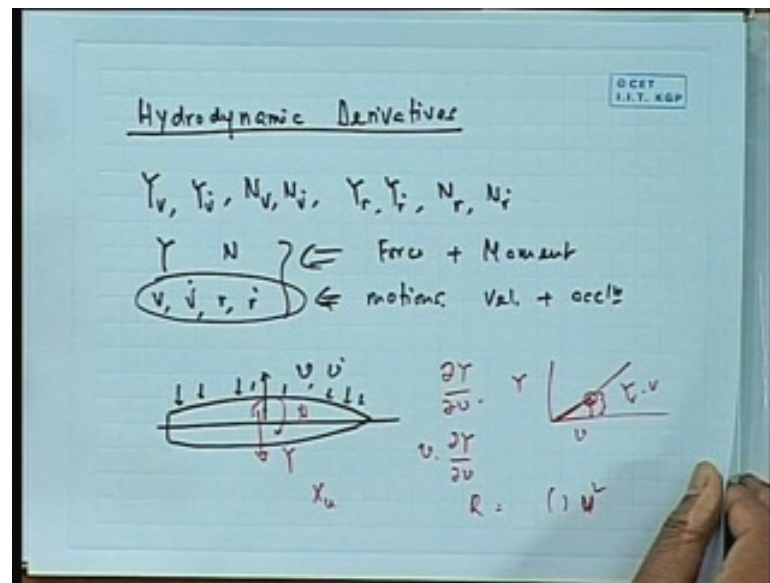 © CET
I.I.T. KGP
Hydrodynamic Derivatives
Y_v, Y_v̇, N_v, N_v̇, Y_r, Y_ṙ, N_r, N_ṙ
Y N } ⇐ Force + Moment
v, v̇, r, ṙ ⇐ motions. Vel. +
υ υ̇
Y
X_u
∂Y/∂υ
υ. ∂Y/∂υ
Y
υ
Y_v.υ
R = ( ) u²